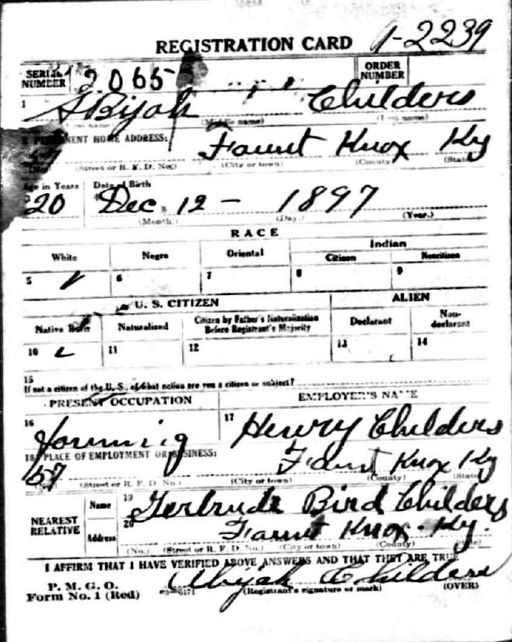 REGISTRATION CARD 1-2239
SERIAL NUMBER 2065 ORDER NUMBER
1 Abijah Childers
(Middle name)
PERMANENT HOME ADDRESS: Faunt Knox Ky
(Street or R. F. D. No.) (City or town) (County) (State)
Age in Years Date of Birth
20 Dec 12 - 1897
(Month.) (Day.) (Year.)
RACE
White Negro Oriental Indian
Citizen Noncitizen
5 6 7 8 9
U. S. CITIZEN ALIEN
Native Born Naturalized Citizen by Father's Naturalization Before Registrant's Majority Declarant Non-declarant
10 11 12 13 14
15
If not a citizen of the U. S., of what nation are you a citizen or subject?
PRESENT OCCUPATION EMPLOYER'S NAME
16 17 Henry Childers
18 PLACE OF EMPLOYMENT OR BUSINESS: Faunt Knox Ky
(Street or R. F. D. No.) (City or town) (County) (State)
NEAREST RELATIVE
Name 19 Gertrude Bird Childers
Address 20 Faunt Knox Ky.
(No.) (Street or R. F. D. No.) (City or town) (County) (State)
I AFFIRM THAT I HAVE VERIFIED ABOVE ANSWERS AND THAT THEY ARE TRUE
P. M. G. O.
Form No. 1 (Red) Abijah Childers
(Registrant's signature or mark) (OVER)